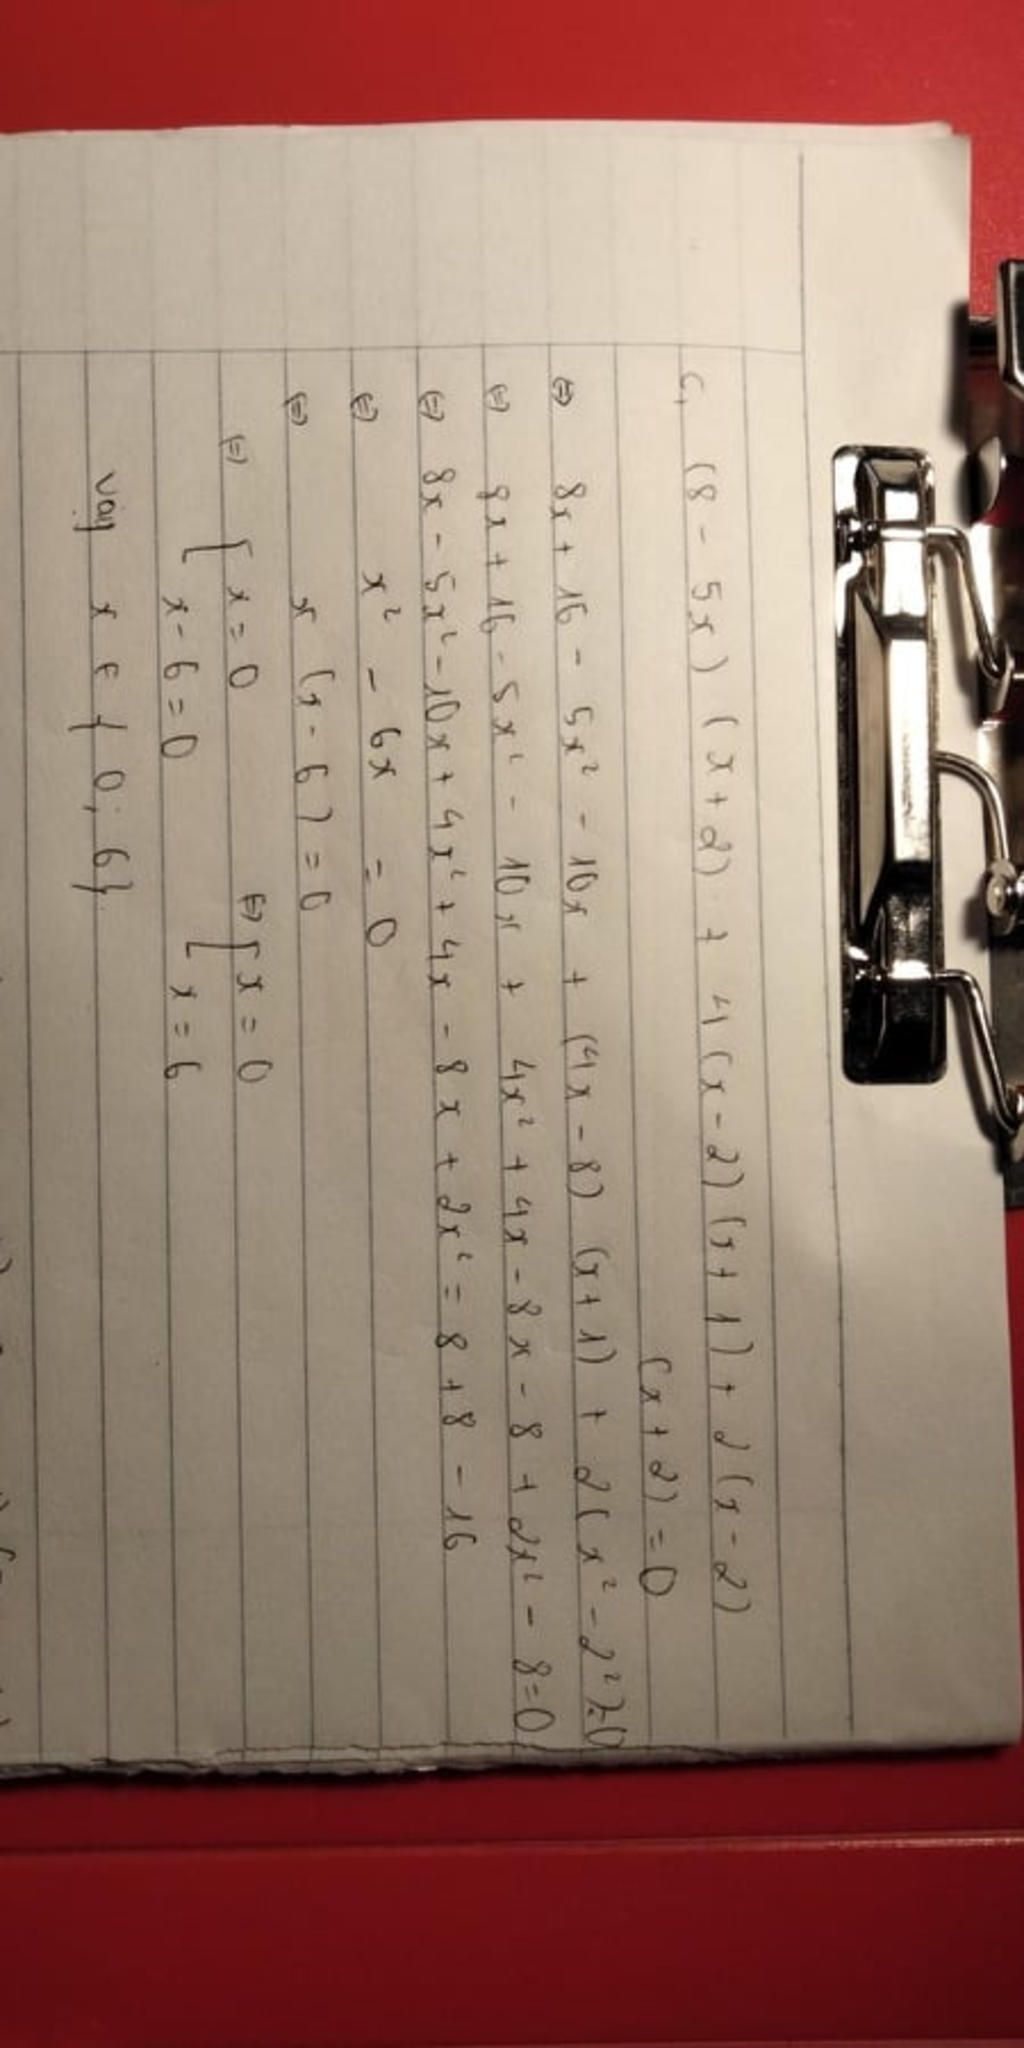 c, (8 - 5x) (x+2) + 4(x-2)(x+1) + 2(x-2)
(x+2) = 0
⇔ 8x + 16 - 5x² - 10x + (4x-8) (x+1) + 2(x²-2²)=0
⇔ 8x + 16 - 5x² - 10x + 4x² + 4x - 8x - 8 + 2x² - 8=0
⇔ 8x - 5x² - 10x + 4x² + 4x - 8x + 2x² = 8 + 8 - 16
⇔ x² - 6x = 0
⇔ x (x - 6) = 0
⇔ [ x = 0 ⇔ [ x = 0
x - 6 = 0 x = 6
Vậy x ∈ { 0; 6}